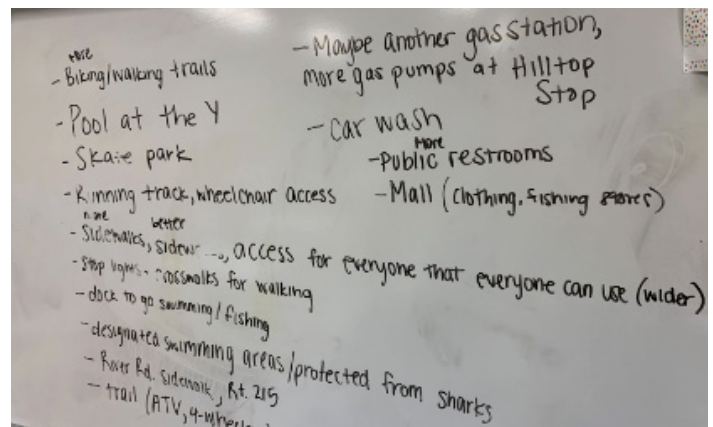 more
- Biking/walking trails
- Pool at the Y
- Skate park
- Running track, wheelchair access
more better
- Sidewalks, access for everyone that everyone can use (wider)
- Stop lights, crosswalks for walking
- dock to go swimming/fishing
- designated swimming areas/protected from sharks
- River Rd. sidewalk, Rt. 215
- trail (ATV,
- Maybe another gas station,
more gas pumps at Hilltop
Stop
- car wash
More
- Public restrooms
- Mall (clothing, fishing stores)